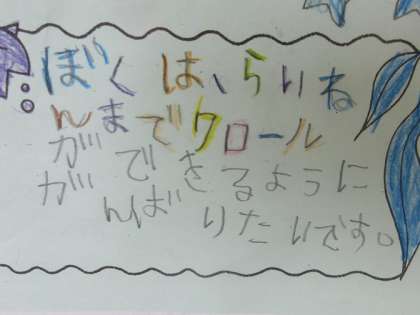 ぼくは、らいね
んまでクロール
ができるように
がんばりたいです。